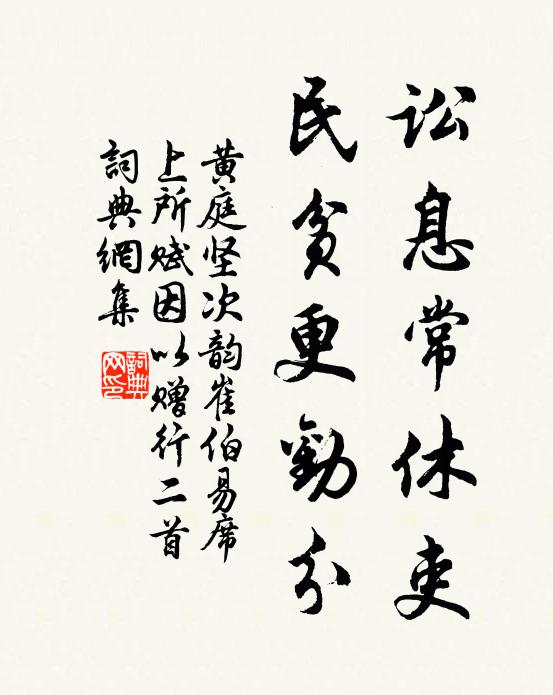 讼息常休吏
民贫更勸分
黄庭坚次韵崔伯易席
上所赋因以赠行二首
詞典網集
詞典
网印